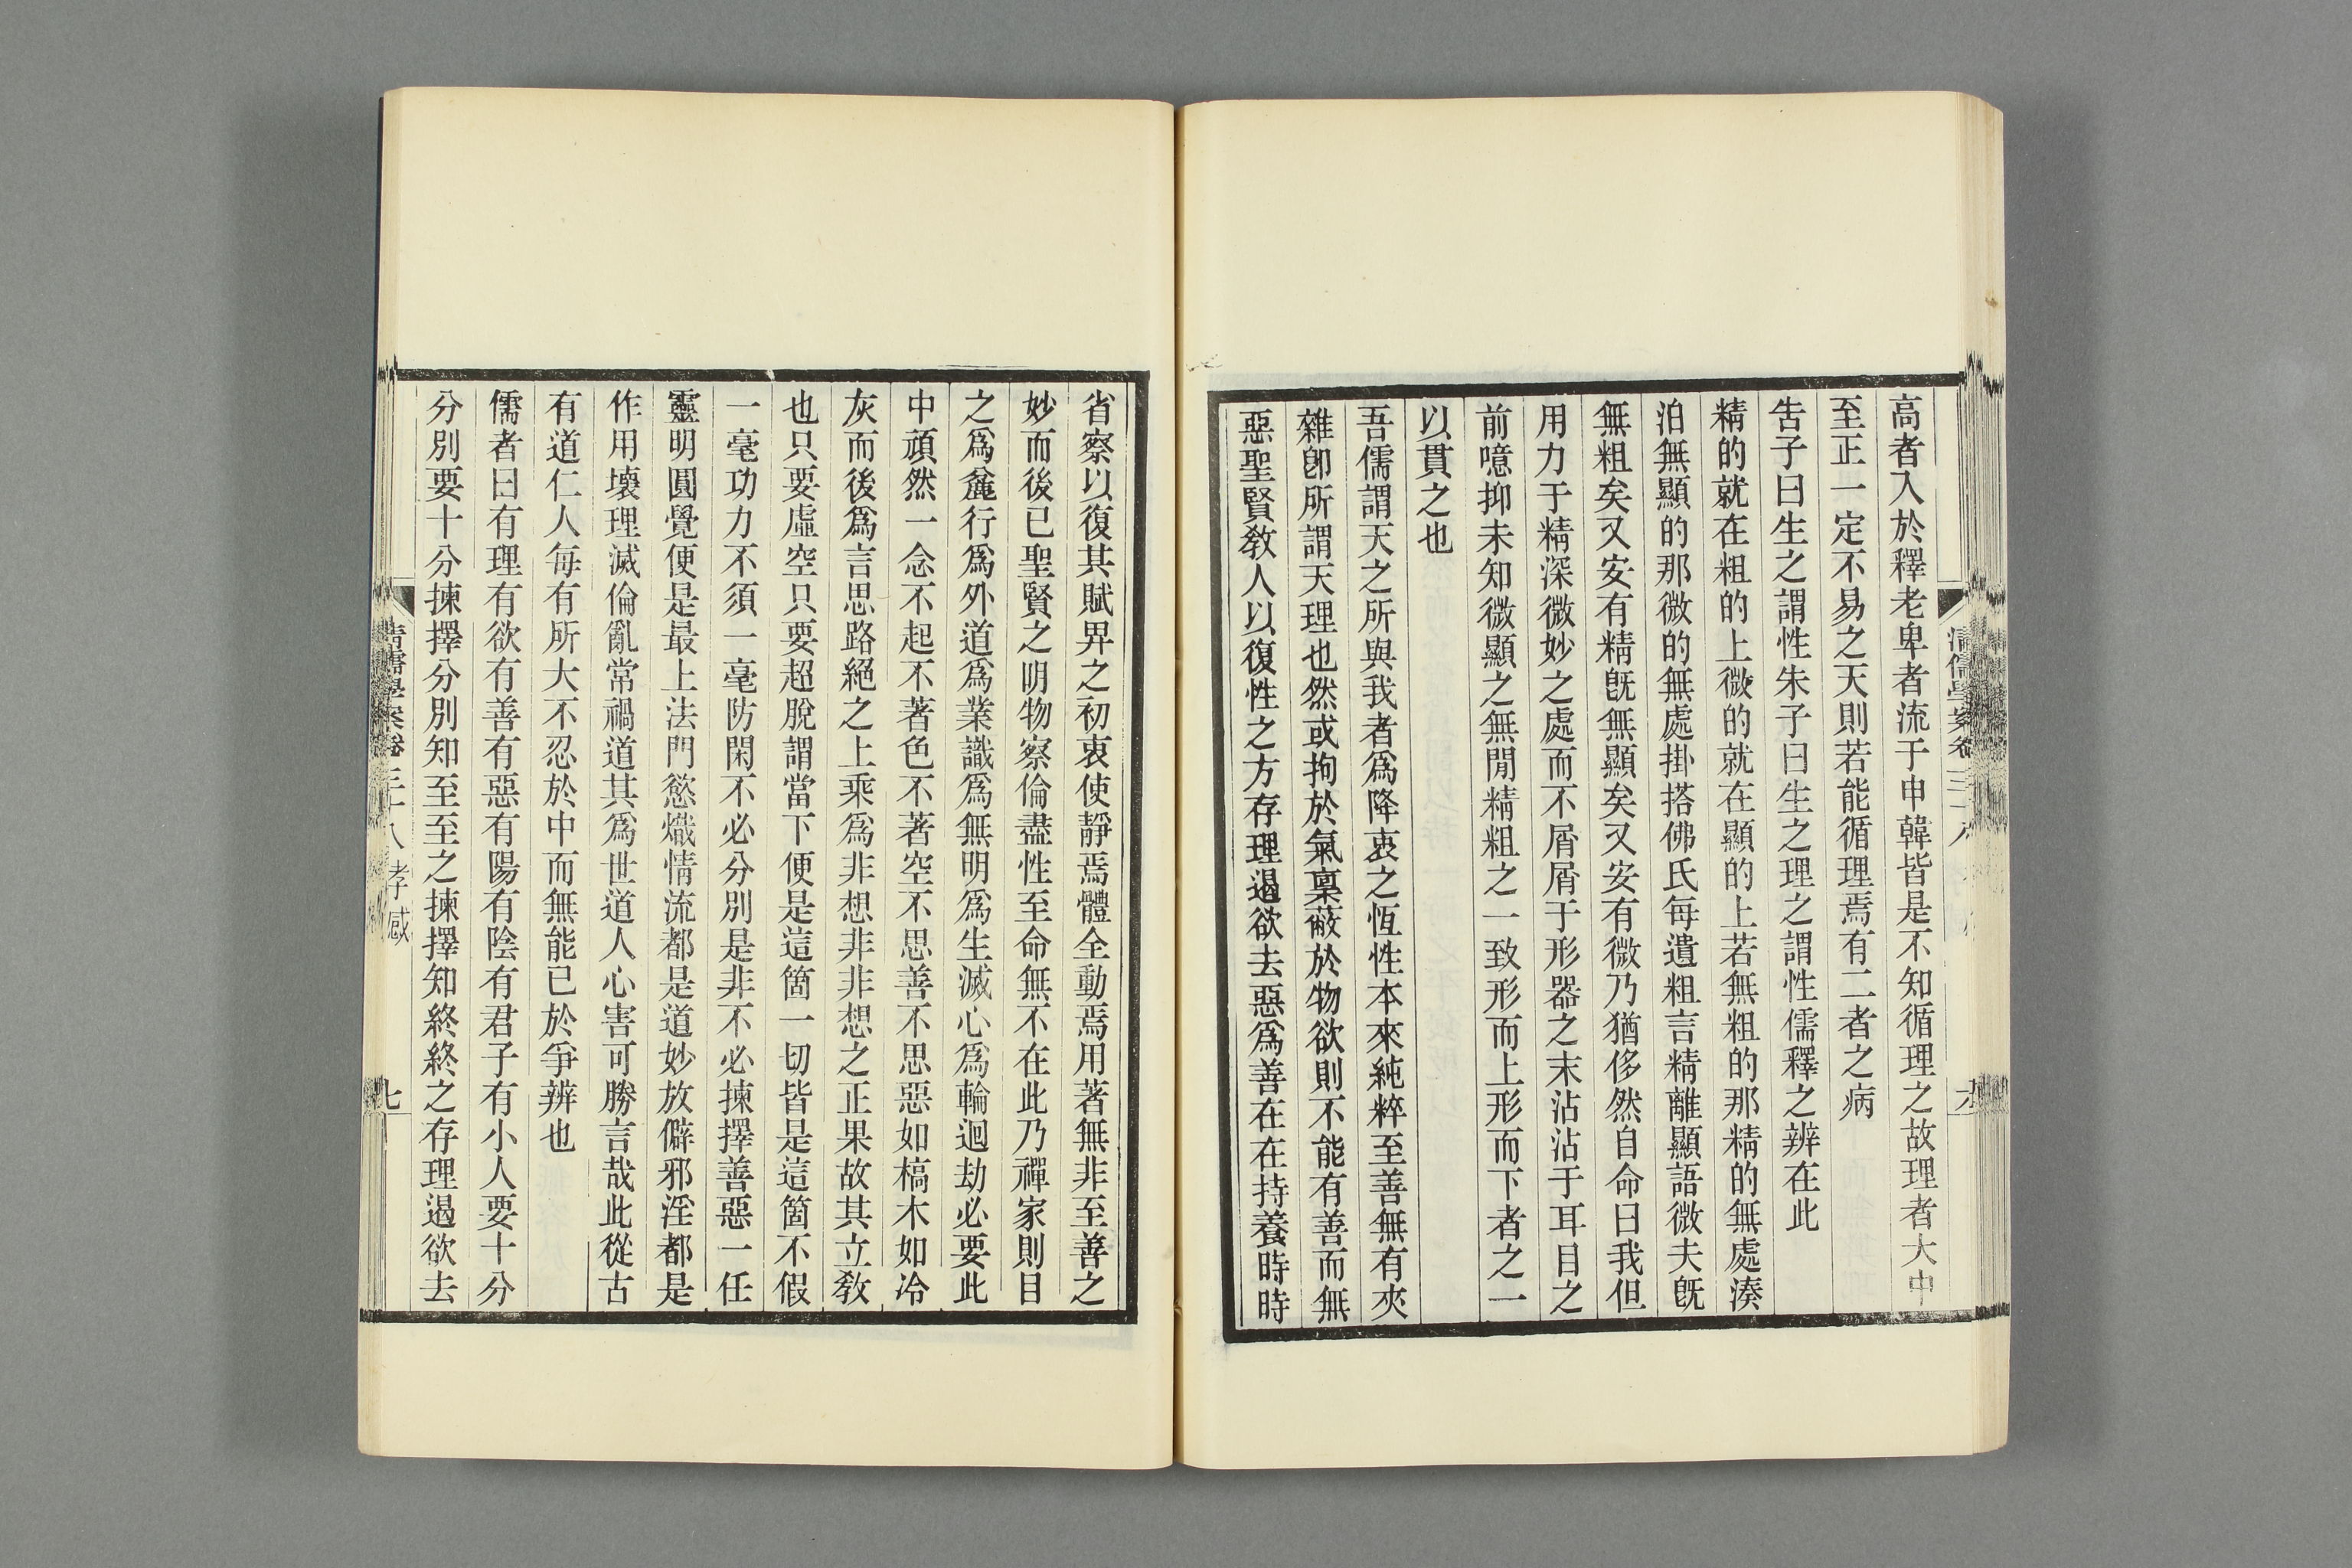 高者入於釋老卑者流于申韓皆是不知循理之故理者大中
至正一定不易之天則若能循理焉有二者之病
告子曰生之謂性朱子曰生之理之謂性儒釋之辨在此
精的就在粗的上微的就在顯的上若無粗的那精的無處湊
泊無顯的那微的無處掛搭佛氏每遺粗言精離顯語微夫旣
無粗矣又安有精旣無顯矣又安有微乃猶侈然自命曰我但
用力于精深微妙之處而不屑屑于形器之末沾沾于耳目之
前噫抑未知微顯之無閒精粗之一致形而上形而下者之一
以貫之也
吾儒謂天之所與我者爲降衷之恆性本來純粹至善無有夾
雜卽所謂天理也然或拘於氣稟蔽於物欲則不能有善而無
惡聖賢敎人以復性之方存理遏欲去惡爲善在在持養時時
省察以復其賦畀之初衷使靜焉體全動焉用著無非至善之
妙而後已聖賢之明物察倫盡性至命無不在此乃禪家則目
之爲麄行爲外道爲業識爲無明爲生滅心爲輪迴劫必要此
中頑然一念不起不著色不著空不思善不思惡如槁木如冷
灰而後爲言思路絕之上乘爲非想非非想之正果故其立敎
也只要虛空只要超脫謂當下便是這箇一切皆是這箇不假
一毫功力不須一毫防閑不必分別是非不必揀擇善惡一任
靈明圓覺便是最上法門慾熾情流都是道妙放僻邪淫都是
作用壞理滅倫亂常禍道其爲世道人心害可勝言哉此從古
有道仁人每有所大不忍於中而無能已於爭辨也
儒者曰有理有欲有善有惡有陽有陰有君子有小人要十分
分別要十分揀擇分別知至至之揀擇知終終之存理遏欲去
清儒學案卷三十八 孝感
七